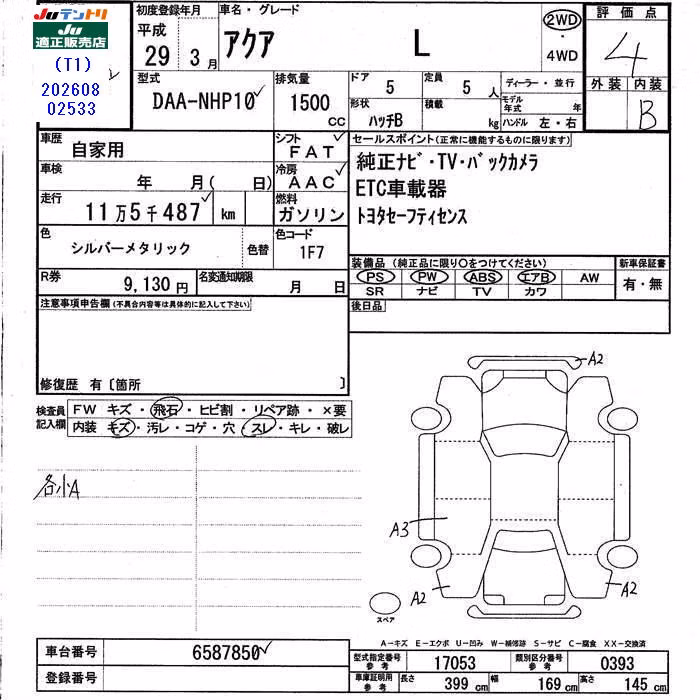 Juテントリ
Ju
適正販売店
(T1)
202608
02533
初度登録年月
平成
29 3 月
車名・グレード
アクア L
2WD
・
4WD
評価点
4
外装 内装
B
型式
DAA-NHP10
排気量
1500
CC
ドア 5
定員 5 人
ディーラー・並行
形状 ハッチB
積載 kg
モデル年式 年
ハンドル 左・右
車歴
自家用
シフト
FAT
車検
年 月( 日)
冷房
AAC
走行
11万5千487 km
燃料
ガソリン
色
シルバーメタリック
色替
色コード
1F7
R券
9,130円
名変通知期限
月 日
セールスポイント(正常に機能するものに限ります)
純正ナビ・TV・バックカメラ
ETC車載器
トヨタセーフティセンス
装備品 (純正品に限り〇をつけてください)
新車保証書
PS PW ABS エアB AW
SR ナビ TV カワ
有・無
後日品
注意事項申告欄 (不具合内容等は具体的に記入して下さい)
修復歴 有〔箇所 〕
検査員
記入欄
FW キズ・飛石・ヒビ割・リペア跡・×要
内装 キズ・汚レ・コゲ・穴・スレ・キレ・破レ
各小A
A2
A3
A2
A2
スペア
A-キズ E-エクボ U-凹み W-補修跡 S-サビ C-腐食 XX-交換済
車台番号
6587850
登録番号
型式指定番号
参考
17053
類別区分番号
参考
0393
車庫証明用
参考
長さ 399 cm
幅 169 cm
高さ 145 cm